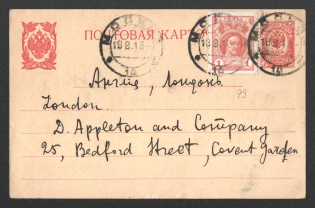 ПОЧТОВАЯ КАРТ
МОСКВА
Англія, Лондонъ.
75
London.
D. Appleton and Company
25, Bedford Street, Covent garden